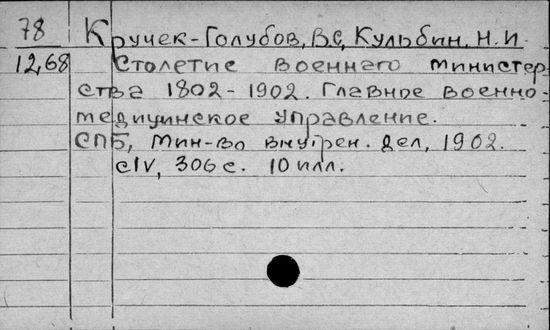 78 Кручек-Голубов, В.С, Кульбин. Н. И.
12,68 Столетие военнаго министер
ства 1802-1902. Главное военно-
медицинское управление.
СПБ, Мин-во внутрен. дел, 1902.
cIV, 306 с. 10 илл.